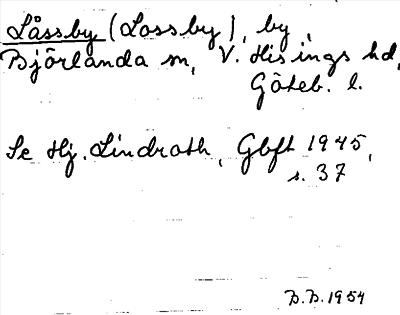 Låssby (Lossby), by,
Björlanda sn, V. Hisings hd,
Göteb. l.
Se Hj. Lindroth, Gbft 1945,
s. 37
B.B. 1954